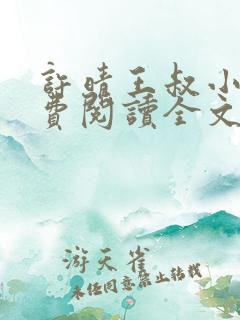 許晴王叔小
費閱讀全文
游天雀
未经同意禁止转载